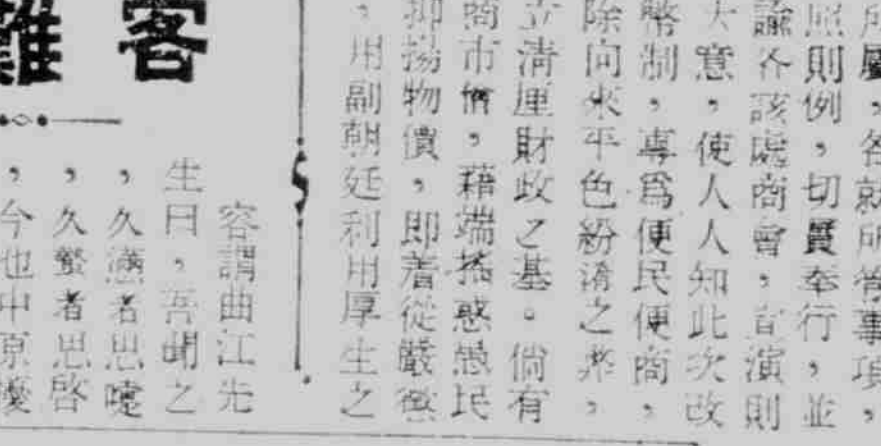 所屬，各就所管事項，
照則例，切實奉行，並
諭各該處商會，宣演則
大意，使人人知此次改
幣制，專爲便民便商，
除向來平色紛淆之弊，
立清厘財政之基。倘有
商市儈，藉端搖惑愚民
抑揚物價，即着從嚴懲
，用副朝廷利用厚生之
客難
客謂曲江先
生曰，吾聞之
，久懣者思嚏
，久蟄者思啓
，今也中原擾